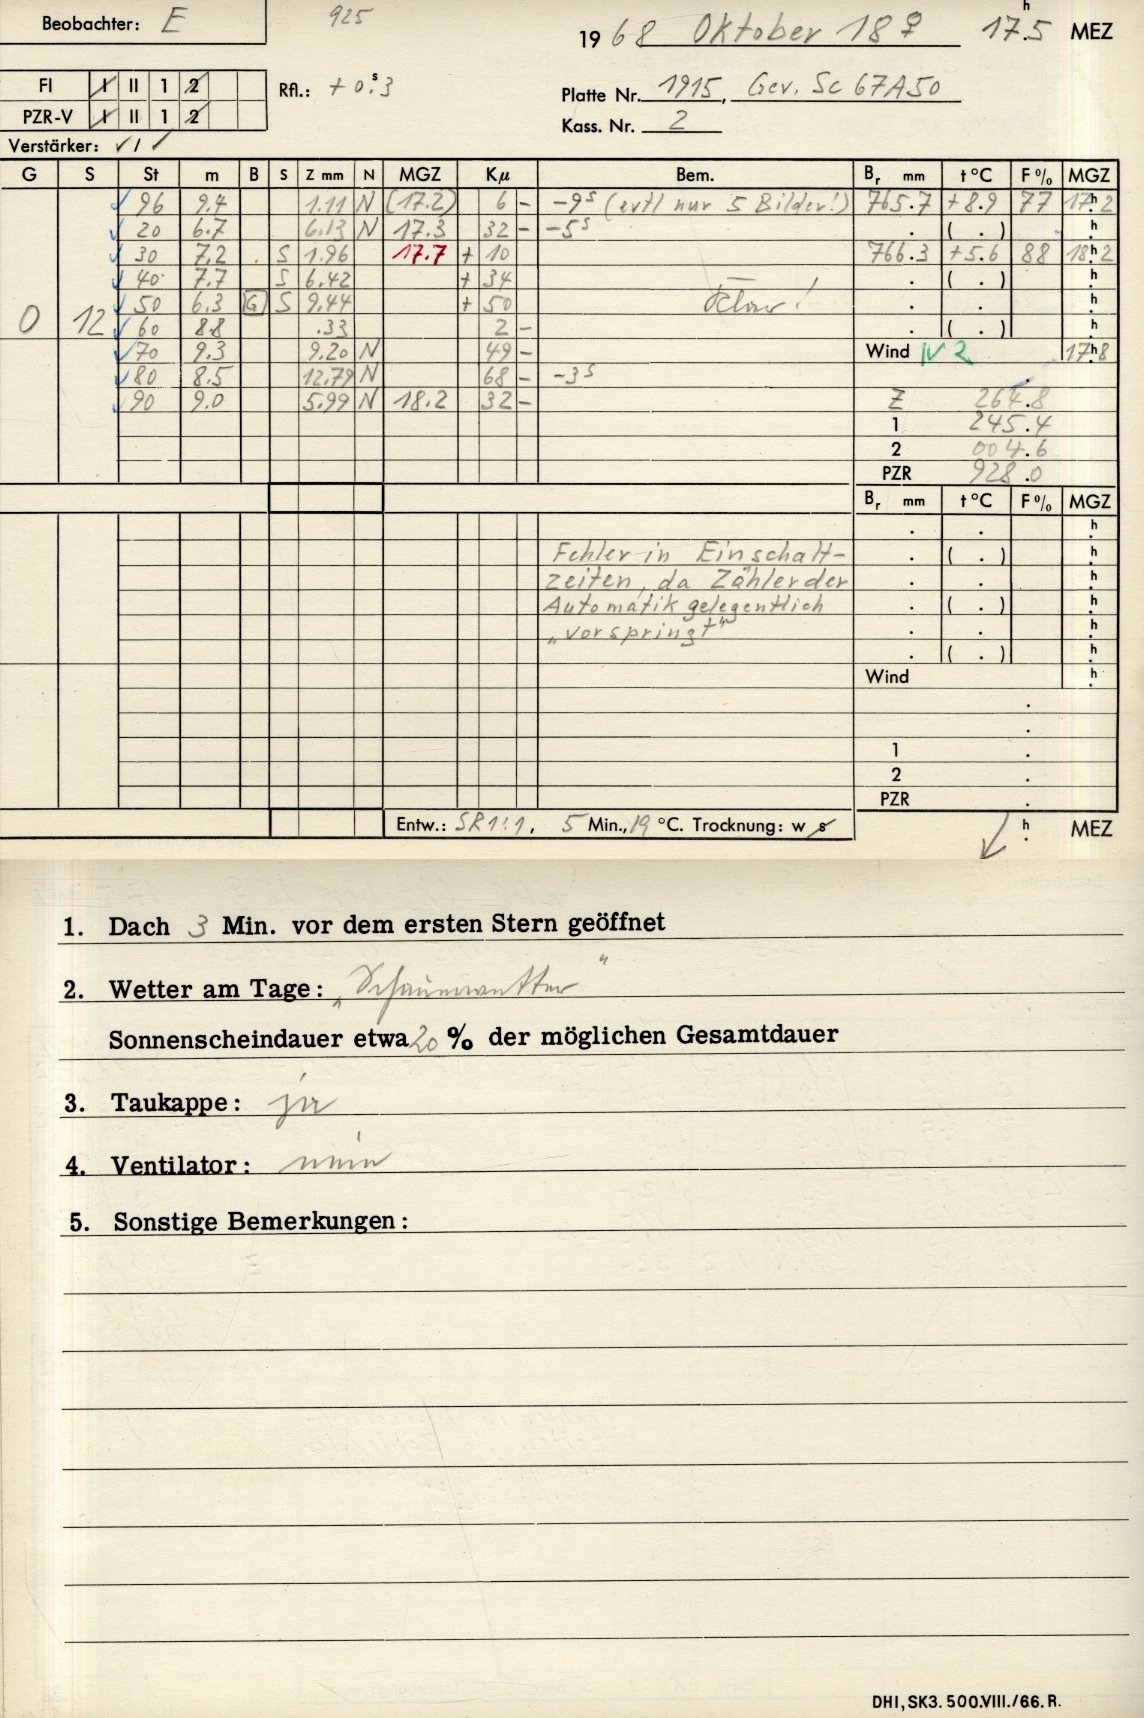 Beobachter: E 925
1968 Oktober 18 ♀ 17.5 h MEZ
FI I II 1 2
PZR-V I II 1 2
Rfl.: + 0.3 s
Platte Nr. 1915, Gev. Sc 67A50
Kass. Nr. 2
Verstärker: √ I √
G S St m B S Z mm N MGZ Kμ Bem. Br mm t °C F % MGZ
96 9.4 1.11 N (17.2) 6 - -9s (evtl nur 5 Bilder!) 765.7 +8.9 77 17h2
20 6.7 6.13 N 17.3 32 - -5s . ( . ) h
30 7.2 S 1.96 17.7 + 10 766.3 +5.6 88 18h2
40 7.7 S 6.42 + 34 . ( . ) h
50 6.3 G S 9.44 + 50 . . h
0 12 60 8.8 .33 2 - . ( . ) h
70 9.3 9.20 N 49 - Wind N 2 17h8
80 8.5 12.79 N 68 - -3s .
90 9.0 5.99 N 18.2 32 - Z 264.8
1 245.4
2 004.6
PZR 928.0
Br mm t °C F % MGZ
. . h
Fehler in Einschalt- . ( . ) h
zeiten, da Zähler der . . h
Automatik gelegentlich . ( . ) h
„vorspringt" . . h
. ( . ) h
Wind h
.
.
1 .
2 .
PZR .
Entw.: SR 1:1, 5 Min., 19 °C. Trocknung: w s h MEZ
1. Dach 3 Min. vor dem ersten Stern geöffnet
2. Wetter am Tage: „Schauerwetter"
Sonnenscheindauer etwa 20 % der möglichen Gesamtdauer
3. Taukappe: ja
4. Ventilator: nein
5. Sonstige Bemerkungen:
DHI, SK3. 500.VIII./66. R.